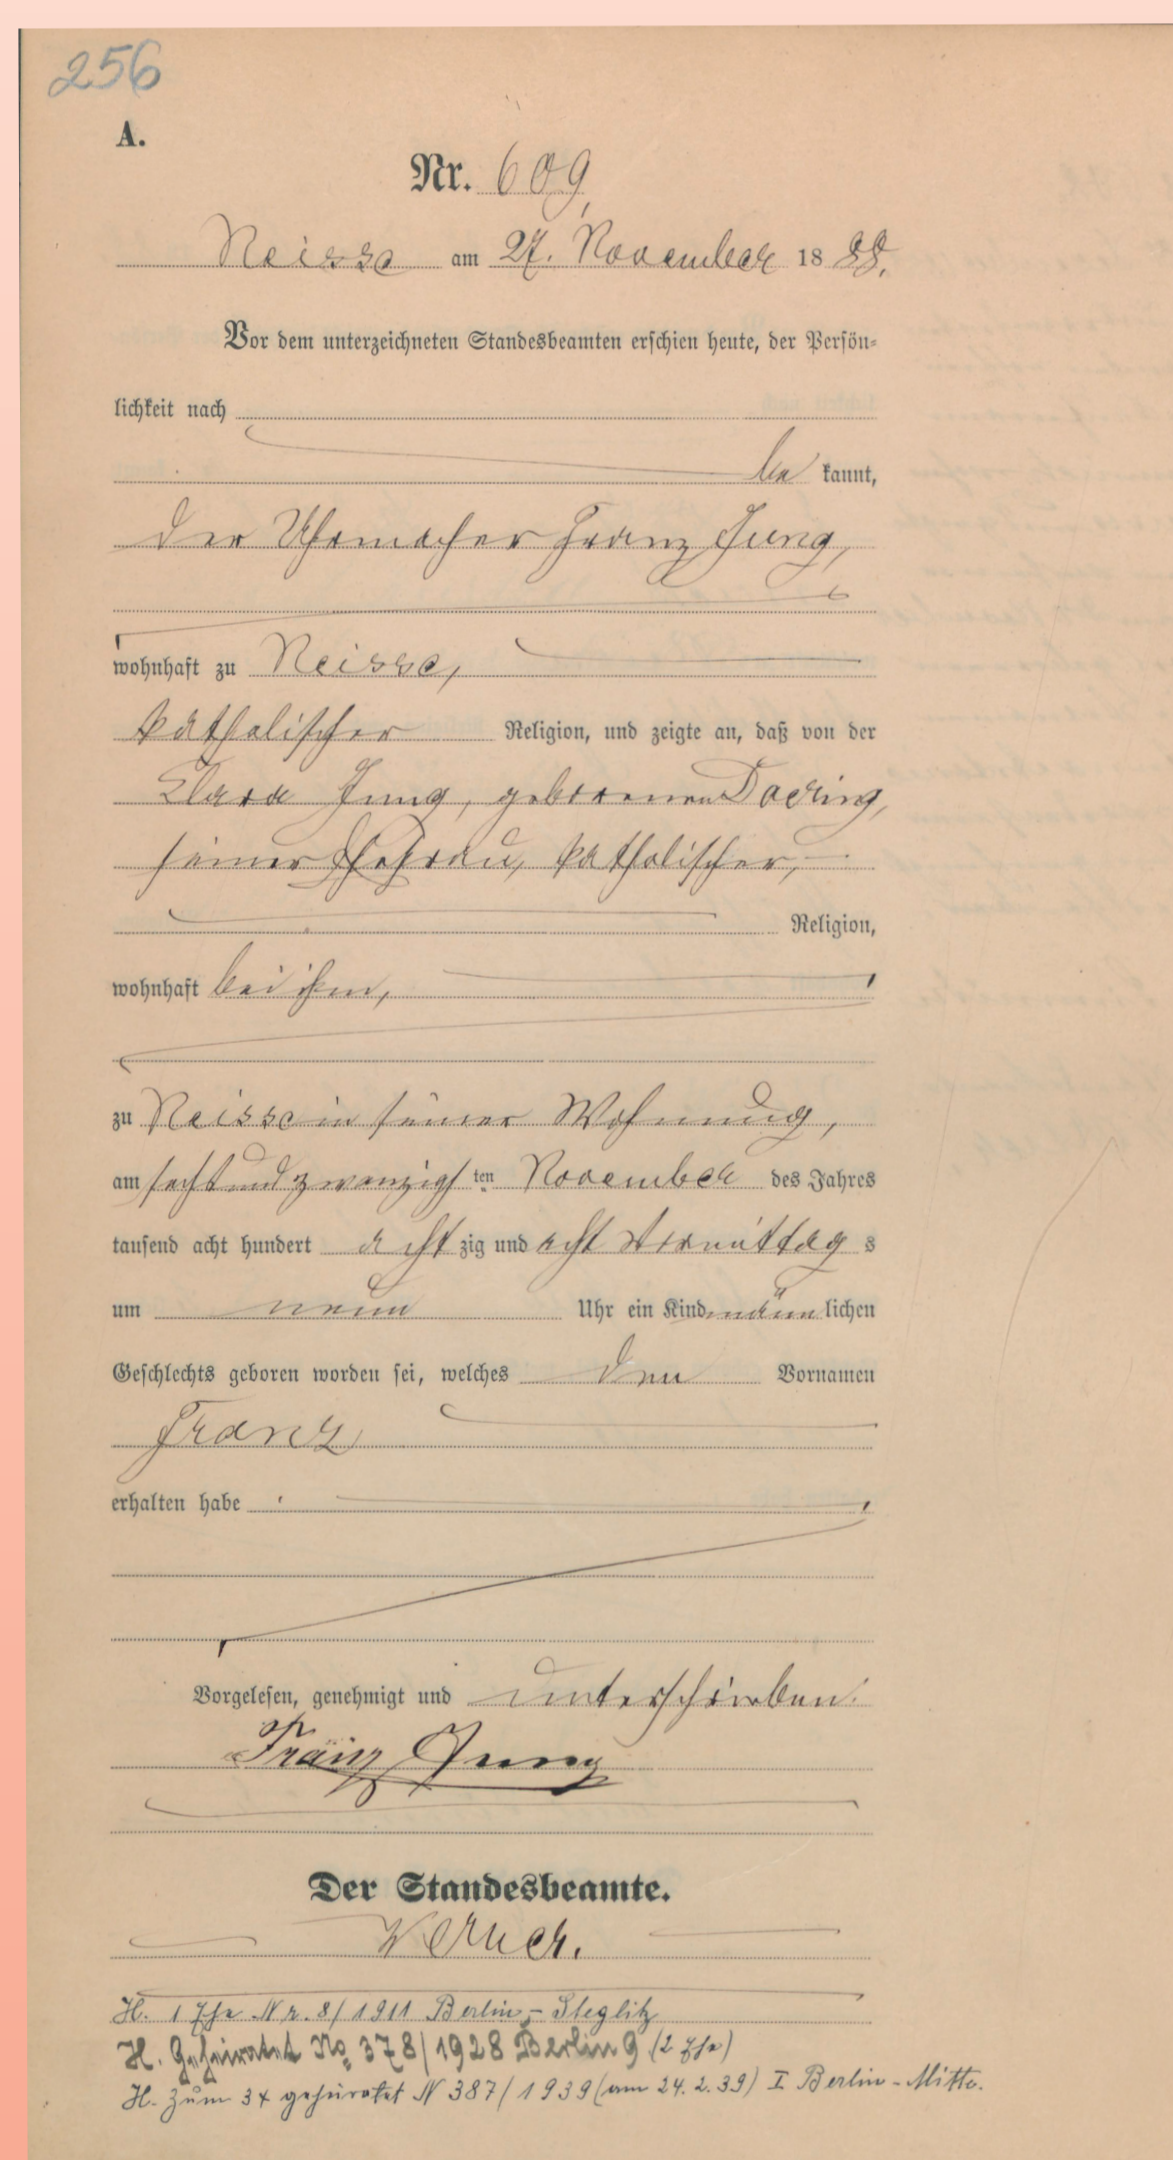 256
A.
Nr. 609,
Neisse am 27. November 18 88.
Vor dem unterzeichneten Standesbeamten erschien heute, der Persön-
lichkeit nach
be kannt,
der Uhrmacher Franz Jung,
wohnhaft zu Neisse,
katholischer Religion, und zeigte an, daß von der
Clara Jung, geborenen Doering,
seiner Ehefrau, katholischer,
Religion,
wohnhaft bei ihm,
zu Neisse in seiner Wohnung,
am sechsundzwanzigsten November des Jahres
tausend acht hundert acht zig und acht Vormittag s
um neun Uhr ein Kind männlichen
Geschlechts geboren worden sei, welches den Vornamen
Franz
erhalten habe
Vorgelesen, genehmigt und unterschrieben.
Franz Jung
Der Standesbeamte.
Werner.
H. 1 Ehe Nr. 8/1911 Berlin-Steglitz
H. Geheiratet No 378/1928 Berlin 9 (2 Ehe)
H. zum 3 x geheiratet N 387/1939 (am 24.2.39) I Berlin-Mitte.